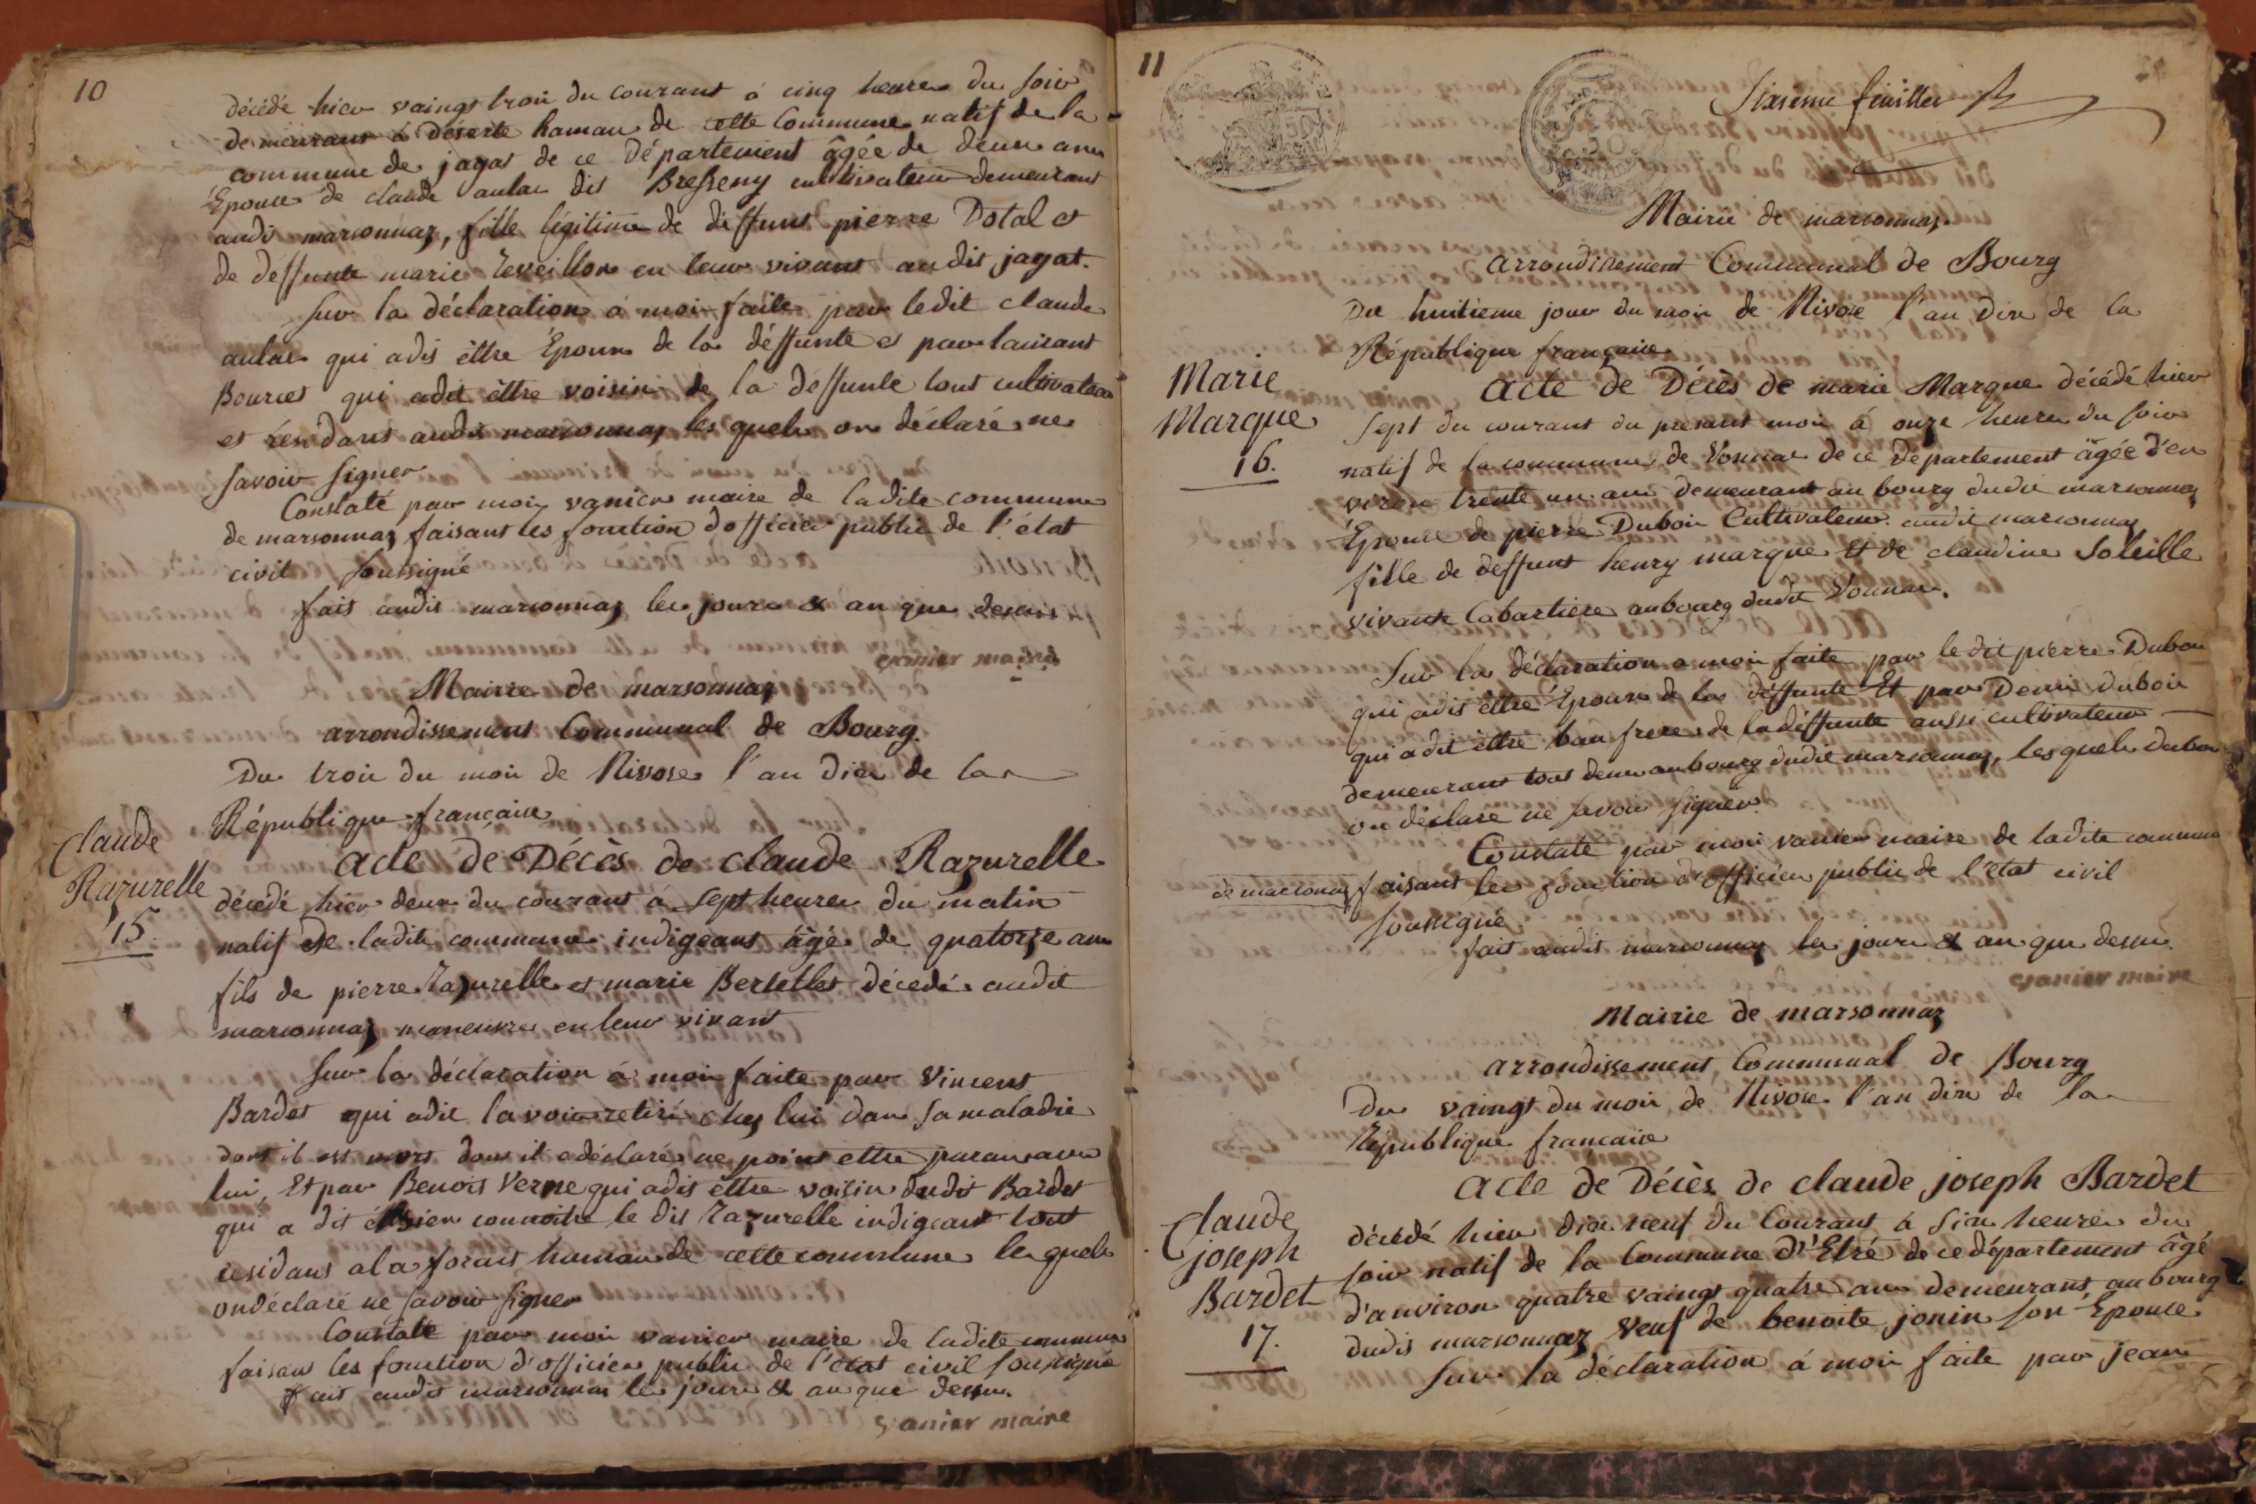 10
décédé hier vaingt troi du courant á cinq heure du soir
demeurant á déserte hamau de cette Commune natif de la
commune de jayat de ce Département âgée de deux ans
Épouse de claude aulas dit Bresseny cultivateur demeurant
audit marsonnaz, fille légitime de deffunt pierre Dotal et
de deffunte marie reveillon en leur vivant au dit jayat.
Sur la déclaration á moi faite par ledit claude
aulas qui adit èttre Époux de la déffunte et par laurant
Bources qui adit èttre voisin de la deffunte tout cultivateur
et résidant audit marsonnaz les quels on déclaré ne
savoir signer
Constaté par moi vanier maire de ladite commune
de marsonnaz faisant les fonction dofficier public de l'état
civil soussigné
fait audit marsonnaz les jours & an que dessus
vanier maire
Mairie de marsonnaz
arrondissement Communal de Bourg.
Du troi du moi de Nivose l'an dix de la
République française
Claude
Razurelle
15.
acte de Décès de claude Razurelle
décédé hier deux du courant á sept heures du matin
natif de ladite commune indigeant âgé de quatorze ans
fils de pierre razurelle et marie Bertellet décédé audit
marsonnaz maneuvre en leur vivant
Sur la déclaration á moi faite par Vincent
Bardet qui adit lavoir retiré chez lui dans sa maladie
dont il est mort dont il a déclaré ne point ettre parans avec
lui, Et par Benoit Verne qui adit èttre voisin dudit Bardet
qui a dit bien connoitre le dit razurelle indigeant tout
residans a la forais hamau de cette commune les quels
ondéclaré ne savoir signer
Constaté par moi vanier maire de ladite commune
faisant les fonction d'officier public de l'état civil soussigné
fait audit marsonnaz les jours & an que dessus.
vanier maire
11
Sixieme feuillet
Mairie de marsonnaz.
arrondissement Communal de Bourg
Du huitieme jour du moi de Nivose l'an Dix de la
République française
Marie
Marque
16.
acte de Décès de marie Marque décédé hier
sept du courant du présent moi á onze heure du soir
natif de la commune de Vonnas de ce département âgée d'en
viron trente un ans demeurant au bourg dudit marsonnaz
Épouse de pierre Duboi Cultivateur audit marsonnaz
fille de deffunt henry marque Et de claudine Soleille
vivante Cabartiere au bourg dudit Vonnas.
Sur la déclaration a moi faite par le dit pierre Duboi
qui adit èttre Époux de la déffunte Et par Deni duboi
qui a dit èttre bau frere de la déffunte aussi cultivateur
demeurant tout deux au bourg dudit marsonnaz, lesquels duboi
on déclaré ne savoir signer.
Constaté par moi vanier maire de ladite commune
de marsonnaz faisant les fonction d'officier public de l'état civil
soussigné
fait audit marsonnaz les jours & an que dessus.
vanier maire
Mairie de marsonnaz
arrondissement Communal de Bourg
Du vaingt du moi de Nivose l'an dix de la
République francaise
Claude
joseph
Bardet
17.
acte de Décès de claude joseph Bardet
décédé hier dix neuf du Courant á six heures du
soir natif de la Commune d'Etré de ce département âgé
d'anviron quatre vaingt quatre ans demeurant au bourg
dudit marsonnaz Veuf de benoite jonin son Épouse
Sur la déclaration á moi faite par jean